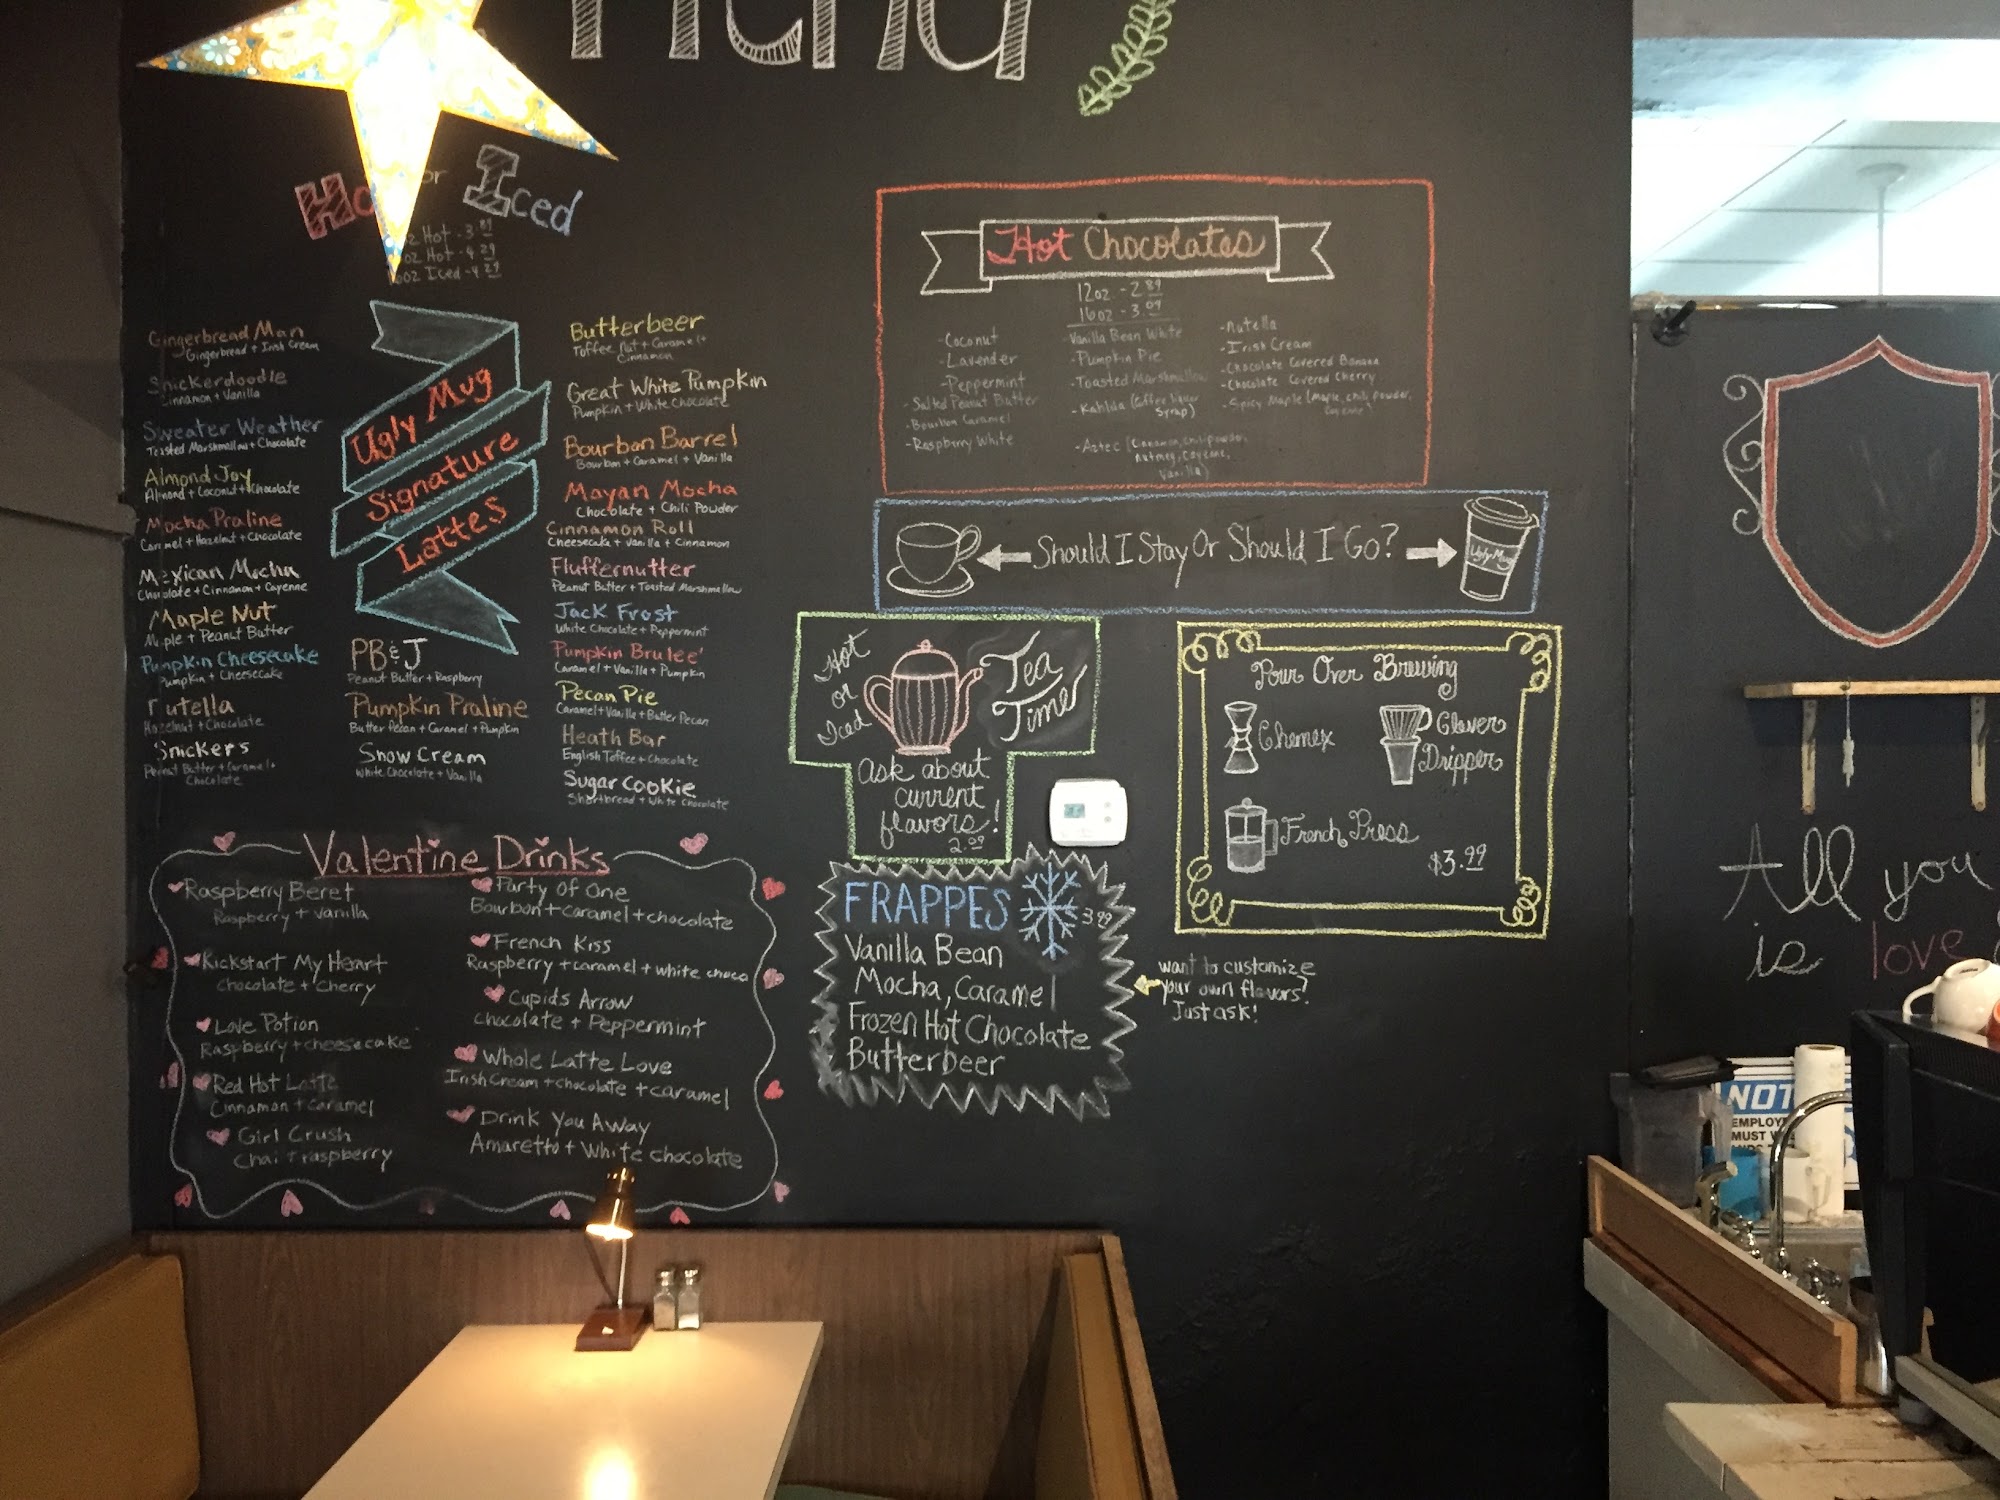 or Iced
Hot - 3.89
oz Hot - 4.29
oz Iced - 4.29
Ugly Mug
Signature
Lattes
Gingerbread Man
Gingerbread + Irish Cream
Snickerdoodle
Cinnamon + Vanilla
Sweater Weather
Toasted Marshmallow + Chocolate
Almond Joy
Almond + Coconut + Chocolate
Mocha Praline
Caramel + Hazelnut + Chocolate
Mexican Mocha
Chocolate + Cinnamon + Cayenne
Maple Nut
Maple + Peanut Butter
Pumpkin Cheesecake
Pumpkin + Cheesecake
Nutella
Hazelnut + Chocolate
Snickers
Peanut Butter + Caramel +
Chocolate
PB & J
Peanut Butter + Raspberry
Pumpkin Praline
Butter Pecan + Caramel + Pumpkin
Snow Cream
White Chocolate + Vanilla
Butterbeer
Toffee Nut + Caramel +
Cinnamon
Great White Pumpkin
Pumpkin + White Chocolate
Bourbon Barrel
Bourbon + Caramel + Vanilla
Mayan Mocha
Chocolate + Chili Powder
Cinnamon Roll
Cheesecake + Vanilla + Cinnamon
Fluffernutter
Peanut Butter + Toasted Marshmallow
Jack Frost
White Chocolate + Peppermint
Pumpkin Brulee'
Caramel + Vanilla + Pumpkin
Pecan Pie
Caramel + Vanilla + Butter Pecan
Heath Bar
English Toffee + Chocolate
Sugar Cookie
Shortbread + White Chocolate
Valentine Drinks
Raspberry Beret
Raspberry + Vanilla
Kickstart My Heart
Chocolate + Cherry
Love Potion
Raspberry + cheesecake
Red Hot Latte
Cinnamon + Caramel
Girl Crush
Chai + raspberry
Party of One
Bourbon + caramel + chocolate
French Kiss
Raspberry + caramel + white choco
Cupids Arrow
Chocolate + Peppermint
Whole Latte Love
Irish Cream + chocolate + caramel
Drink You Away
Amaretto + White chocolate
Hot Chocolates
12oz. - 2.89
16oz - 3.09
- Coconut
- Lavender
- Peppermint
- Salted Peanut Butter
- Bourbon Caramel
- Raspberry White
- Vanilla Bean White
- Pumpkin Pie
- Toasted Marshmallow
- Kahlua (Coffee liquor
Syrup)
- Aztec (Cinnamon, Chili powder,
nutmeg, Cayenne,
Vanilla)
- Nutella
- Irish Cream
- Chocolate Covered Banana
- Chocolate Covered Cherry
- Spicy Maple (Maple, chili powder,
Cayenne)
Should I Stay Or Should I Go?
Ugly Mug
Hot
or
Iced
Tea
Time
Ask about
current
flavors!
2.09
FRAPPES 3.89
Vanilla Bean
Mocha, Caramel
Frozen Hot Chocolate
Butterbeer
want to customize
your own flavors?
Just ask!
Pour Over Brewing
Chemex
Clever
Dripper
French Press
$3.99
All you
is love
NOT
EMPLOY
MUST W